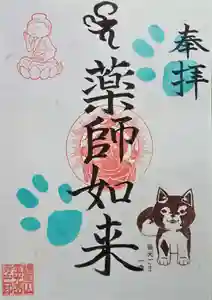 奉拝
薬師如来